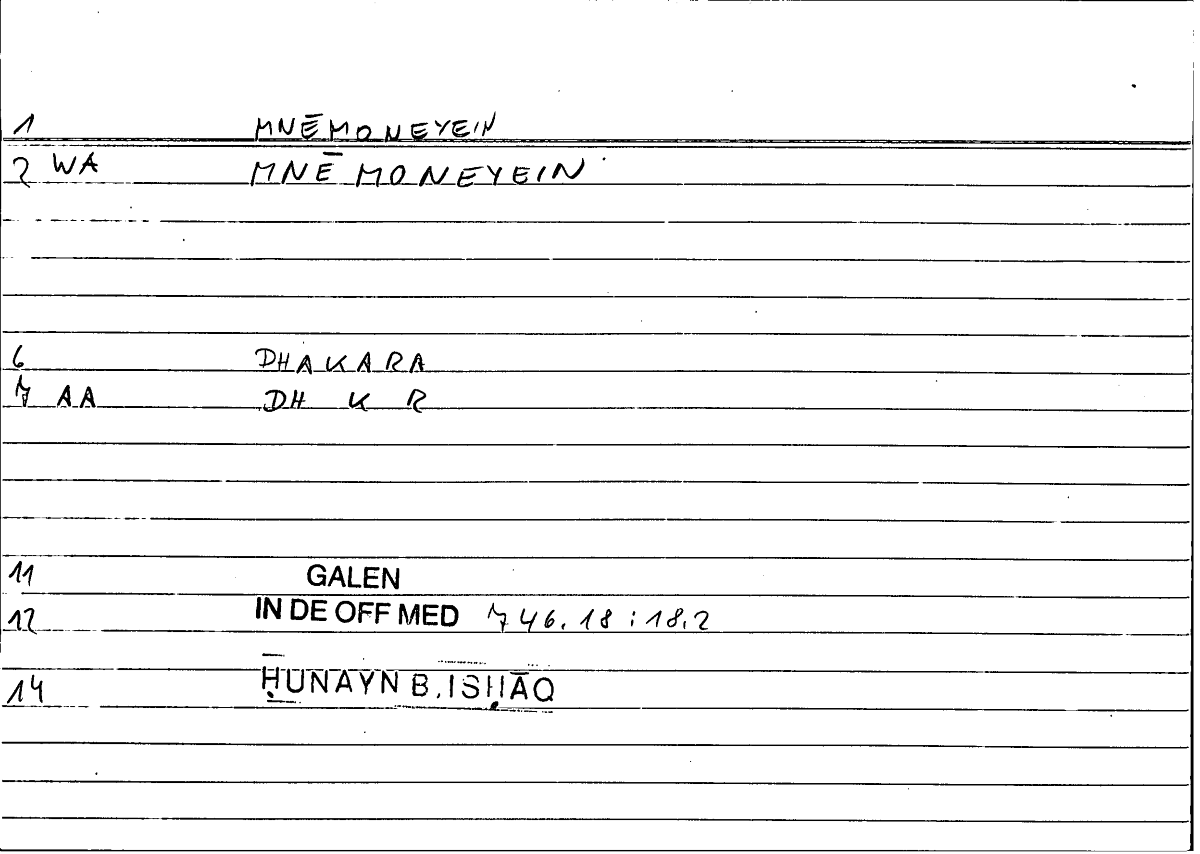 1 MNĒMONEYEIN
2 WA MNĒMONEYEIN
6 DHAKARA
7 AA DH K R
11 GALEN
12 IN DE OFF MED 746.18 : 18.2
14 ḤUNAYN B. ISḤĀQ